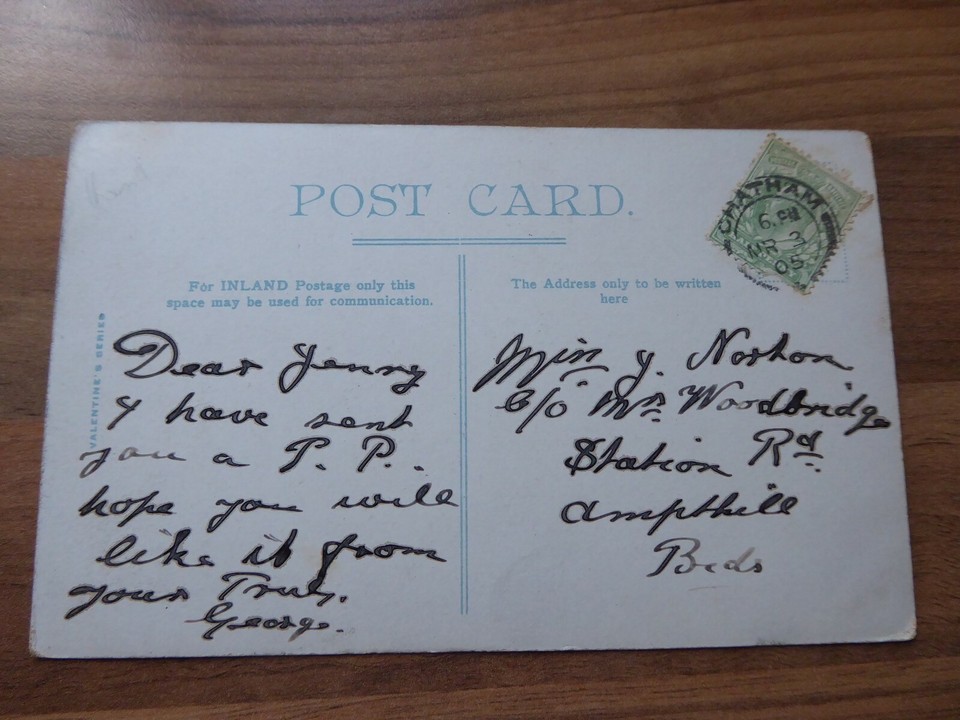 POST CARD.
CHATHAM
6. PM
MR 3
05
For INLAND Postage only this
space may be used for communication.
VALENTINE'S SERIES
Dear Jenny
I have sent
you a P. P..
hope you will
like it from
yours Truly.
George.
The Address only to be written
here
Miss J. Norton
C/o Mrs Woodbridge
Station Rd.
Ampthill
Beds